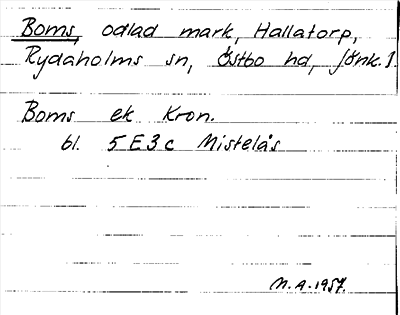 Boms, odlad mark, Hallatorp,
Rydaholms sn, Östbo hd, Jönk. l
Boms ek Kron.
bl. 5E3c Mistelås
N.A. 1957.